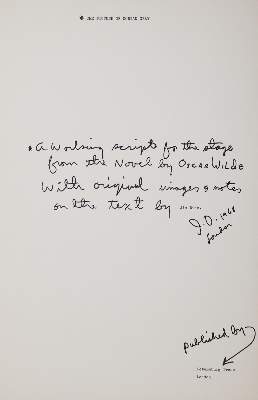 THE PICTURE OF DORIAN GRAY
• A working script for the stage
from the Novel by Oscar Wilde
With original images & notes
on the text by Jim Dine
J.D. 1968
London
published by
Petersburg Press
London